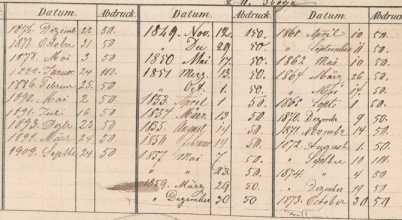 Datum. Abdruck. Datum. Abdruck. Datum. Abdruck.
1876. Dezemb 22 50. 1849. Nov. 12. 150. 1860 April 10 50.
1877. Octob 31 50. " De 29 50. " September 11 50.
1878. Mai 3 50. 1850 Mai 17 50. 1862 Mai 10 50.
Januar 24 100. 1851 Merz 13. 50. 1864 März 26 50.
1886. Februar 25. 50. " Oct. 1. 50. " Mai 17. 50.
1890. Mai 2 50. 1853. April 1 50. 1865 1 50.
1891. Juli 16 50. 1854 März 13 50. 1870. Dezember 9 50.
1893. 22 50. 1855. August 14 50. 1871. November 14 50.
März 24 50. 1856 14 50. 1872. August 1. 50.
1902. Septbr 24 50. 1857. Mai 7 50. " 10 100.
" 23. 50. 1874 " 4 50.
1859. März 29 50. " Dezember 19 50.
" Dezember 30 50 1873. October 30 50.